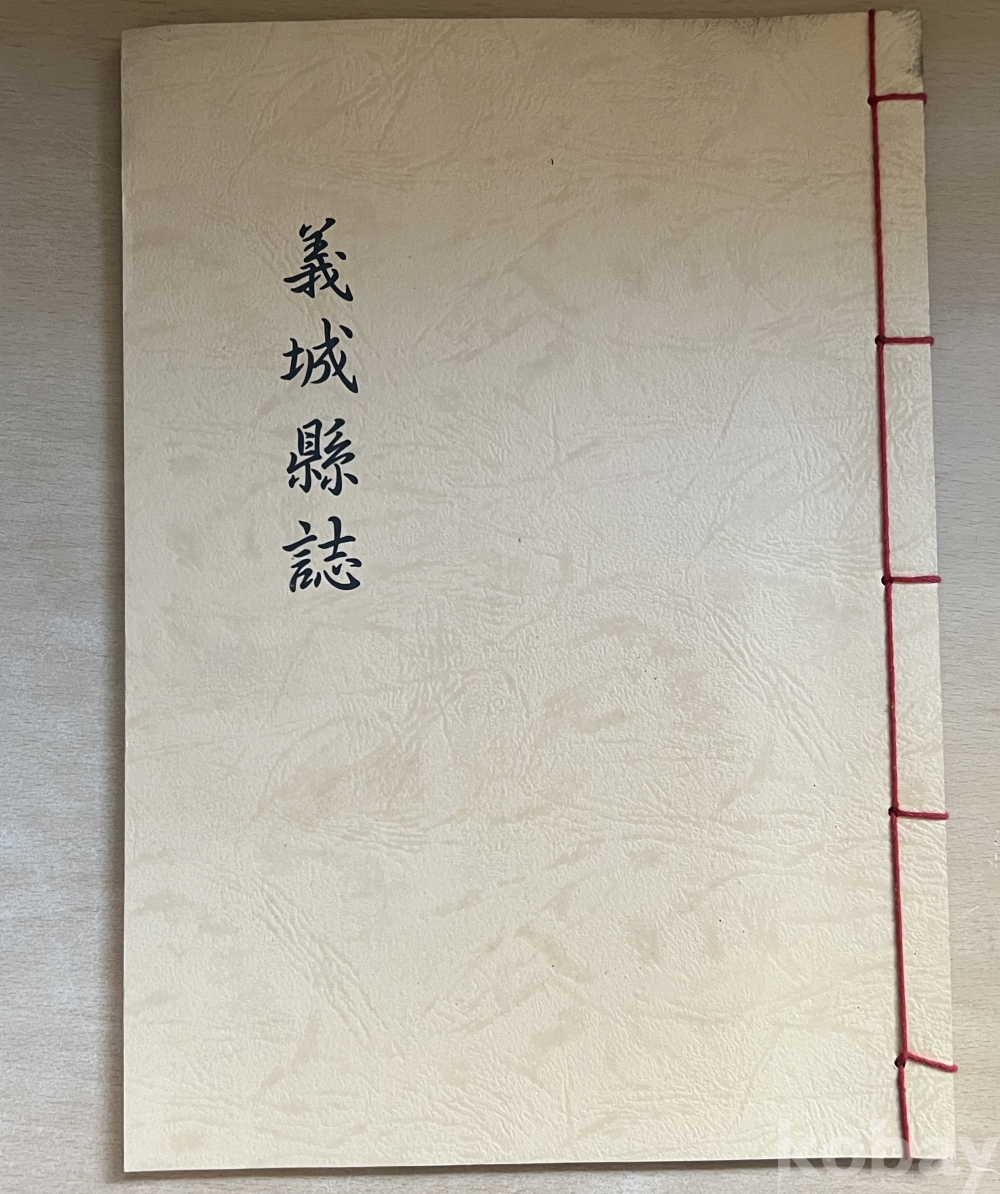 義城縣誌
kobay